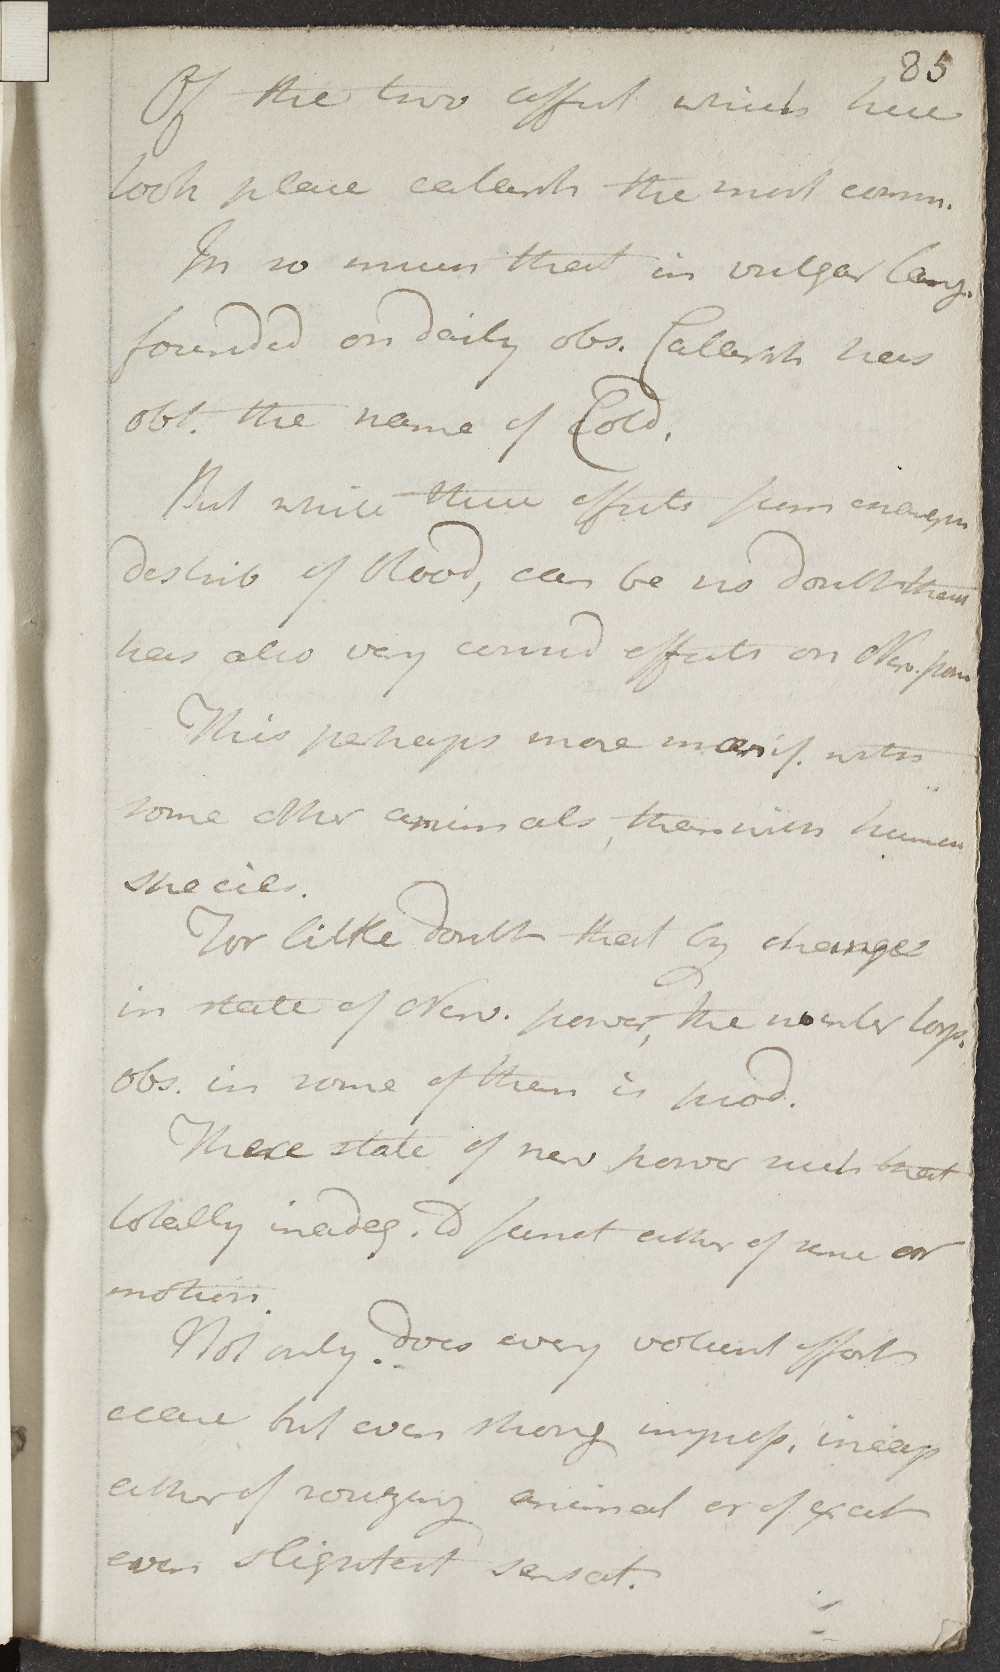 85
Of the two effect which here
took place catarrh the most comm.
In so much that in vulgar lang.
founded on daily obs. Catarrh has
obt. the name of Cold.
But while these effects from
distrib of blood, can be no doubt
has also very consid effects on Nerv. pow
This perhaps more manif. with
some other animals, than with human
species.
For little doubt that by change
in state of Nerv. power, the winter torp.
obs. in some of them is prod.
There state of nerv power such that
totally inadeq. to funct either of sense or
motion.
Not only does every violent effort
cease but even strong impress. incap
either of rouzing animal or of excit
even slightest sensat.